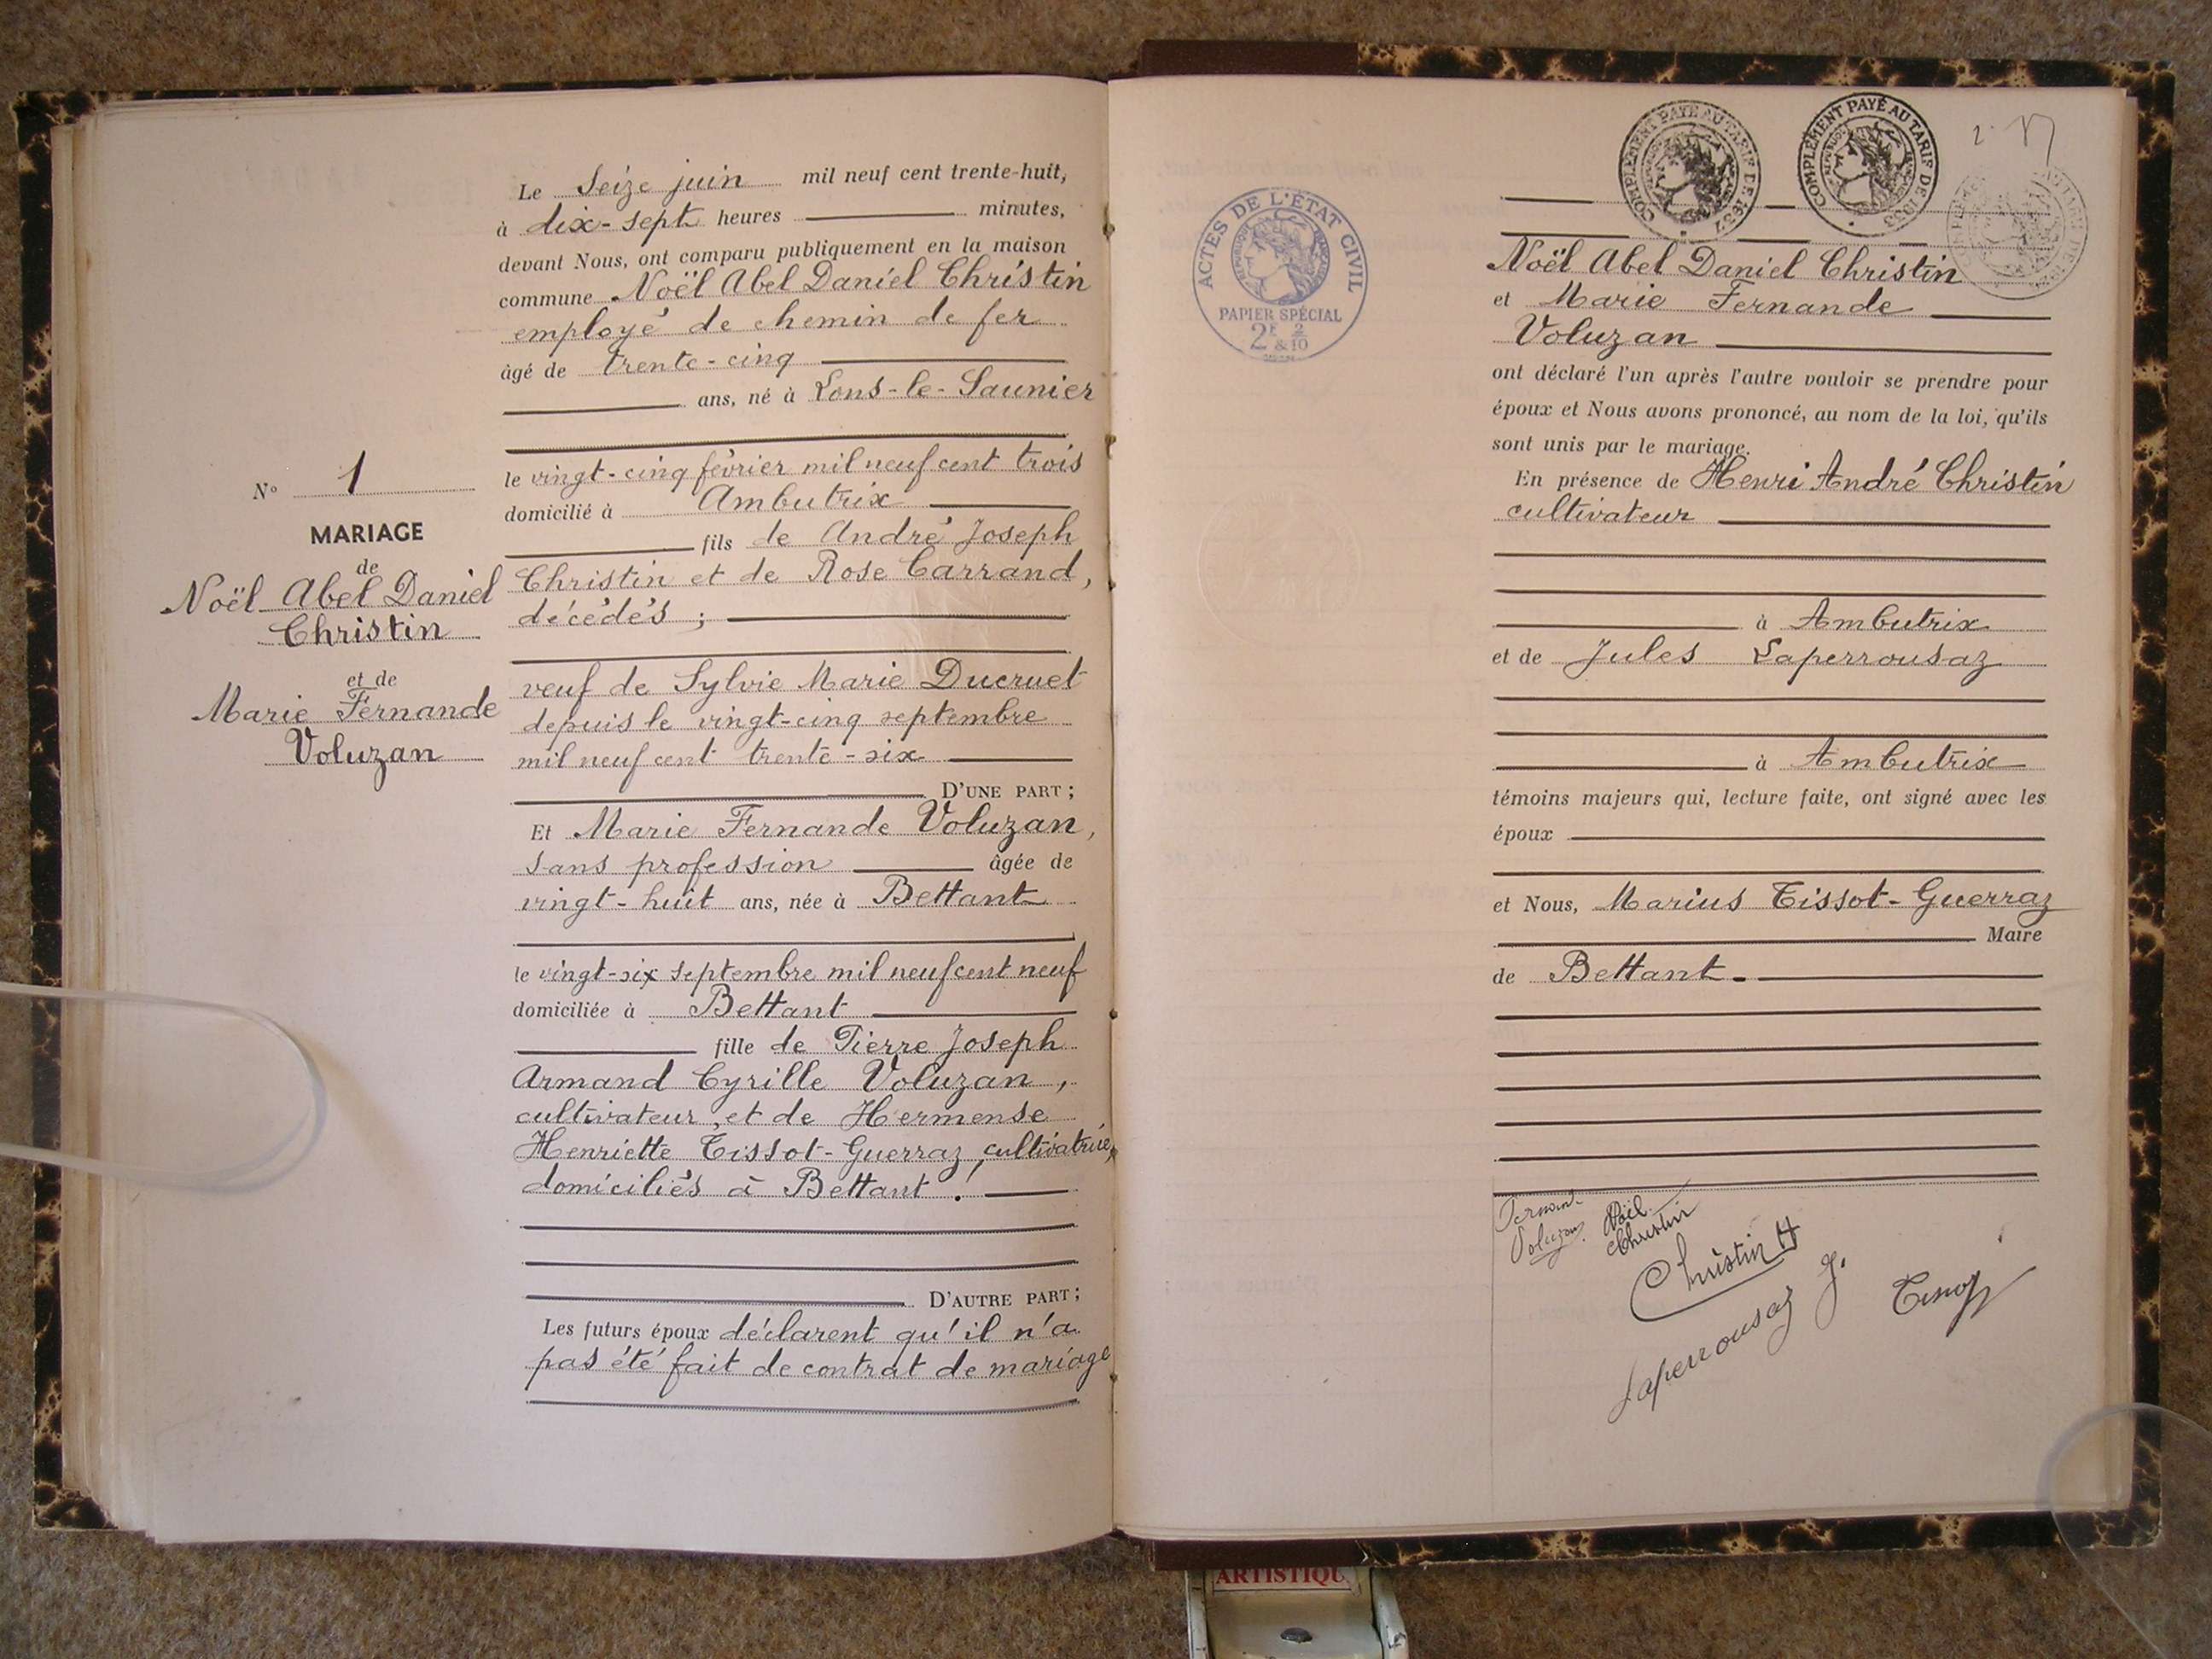 Le Seize juin mil neuf cent trente-huit,
à dix-sept heures minutes,
devant Nous, ont comparu publiquement en la maison
commune Noël Abel Daniel Christin
employé de chemin de fer
âgé de trente-cinq
ans, né à Lons-le-Saunier
le vingt-cinq février mil neuf cent trois
domicilié à Ambutrix
fils de André Joseph
Christin et de Rose Carrand,
décédés ;
veuf de Sylvie Marie Ducruet
depuis le vingt-cinq septembre
mil neuf cent trente-six
D'UNE PART ;
Et Marie Fernande Voluzan,
sans profession âgée de
vingt-huit ans, née à Bettant
le vingt-six septembre mil neuf cent neuf
domiciliée à Bettant
fille de Pierre Joseph
Armand Cyrille Voluzan,
cultivateur, et de Hermense
Henriette Tissot-Guerraz, cultivatrice,
domiciliés à Bettant.
D'AUTRE PART ;
Les futurs époux déclarent qu'il n'a
pas été fait de contrat de mariage
N° 1
MARIAGE
de
Noël Abel Daniel
Christin
et de
Marie Fernande
Voluzan
ACTES DE L'ÉTAT CIVIL
PAPIER SPÉCIAL
2F & 2/10
COMPLÉMENT PAYÉ AU TARIF DE 1937
COMPLÉMENT PAYÉ AU TARIF DE 1933
Noël Abel Daniel Christin
et Marie Fernande
Voluzan
ont déclaré l'un après l'autre vouloir se prendre pour
époux et Nous avons prononcé, au nom de la loi, qu'ils
sont unis par le mariage.
En présence de Henri André Christin
cultivateur
à Ambutrix
et de Jules Laperrousaz
à Ambutrix
témoins majeurs qui, lecture faite, ont signé avec les
époux
et Nous, Marius Tissot-Guerraz
Maire
de Bettant.
Voluzan Noël
Christin
Christin H
Laperrousaz J.
ARTISTIQU